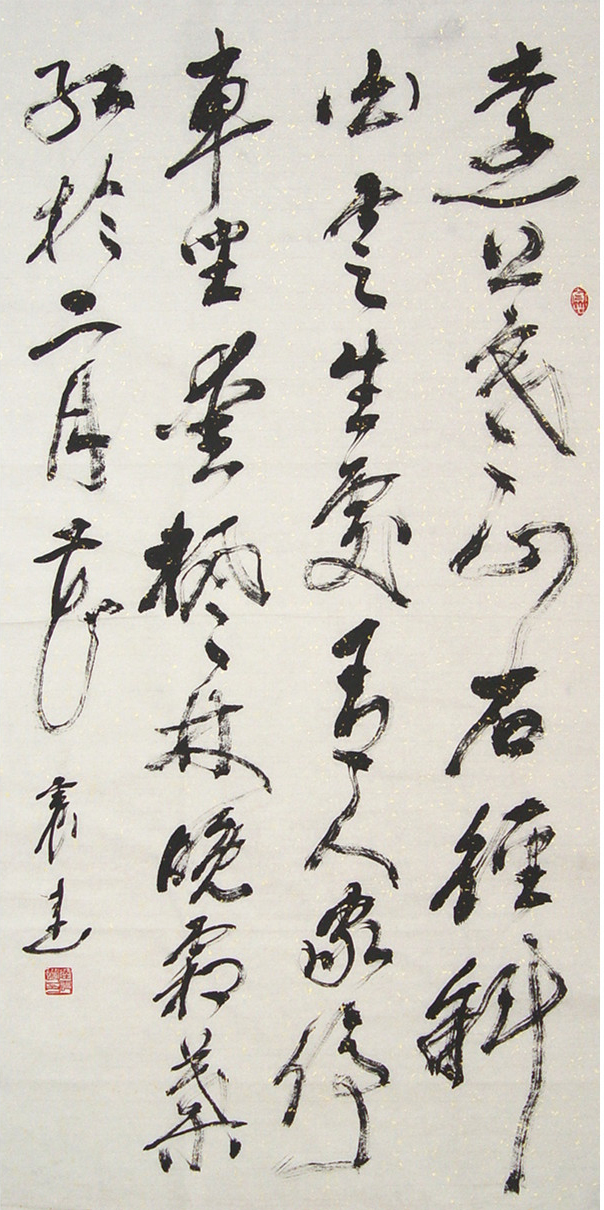 遠上寒山石徑斜
白云生處有人家停
車坐愛楓林晚霜葉
紅於二月花